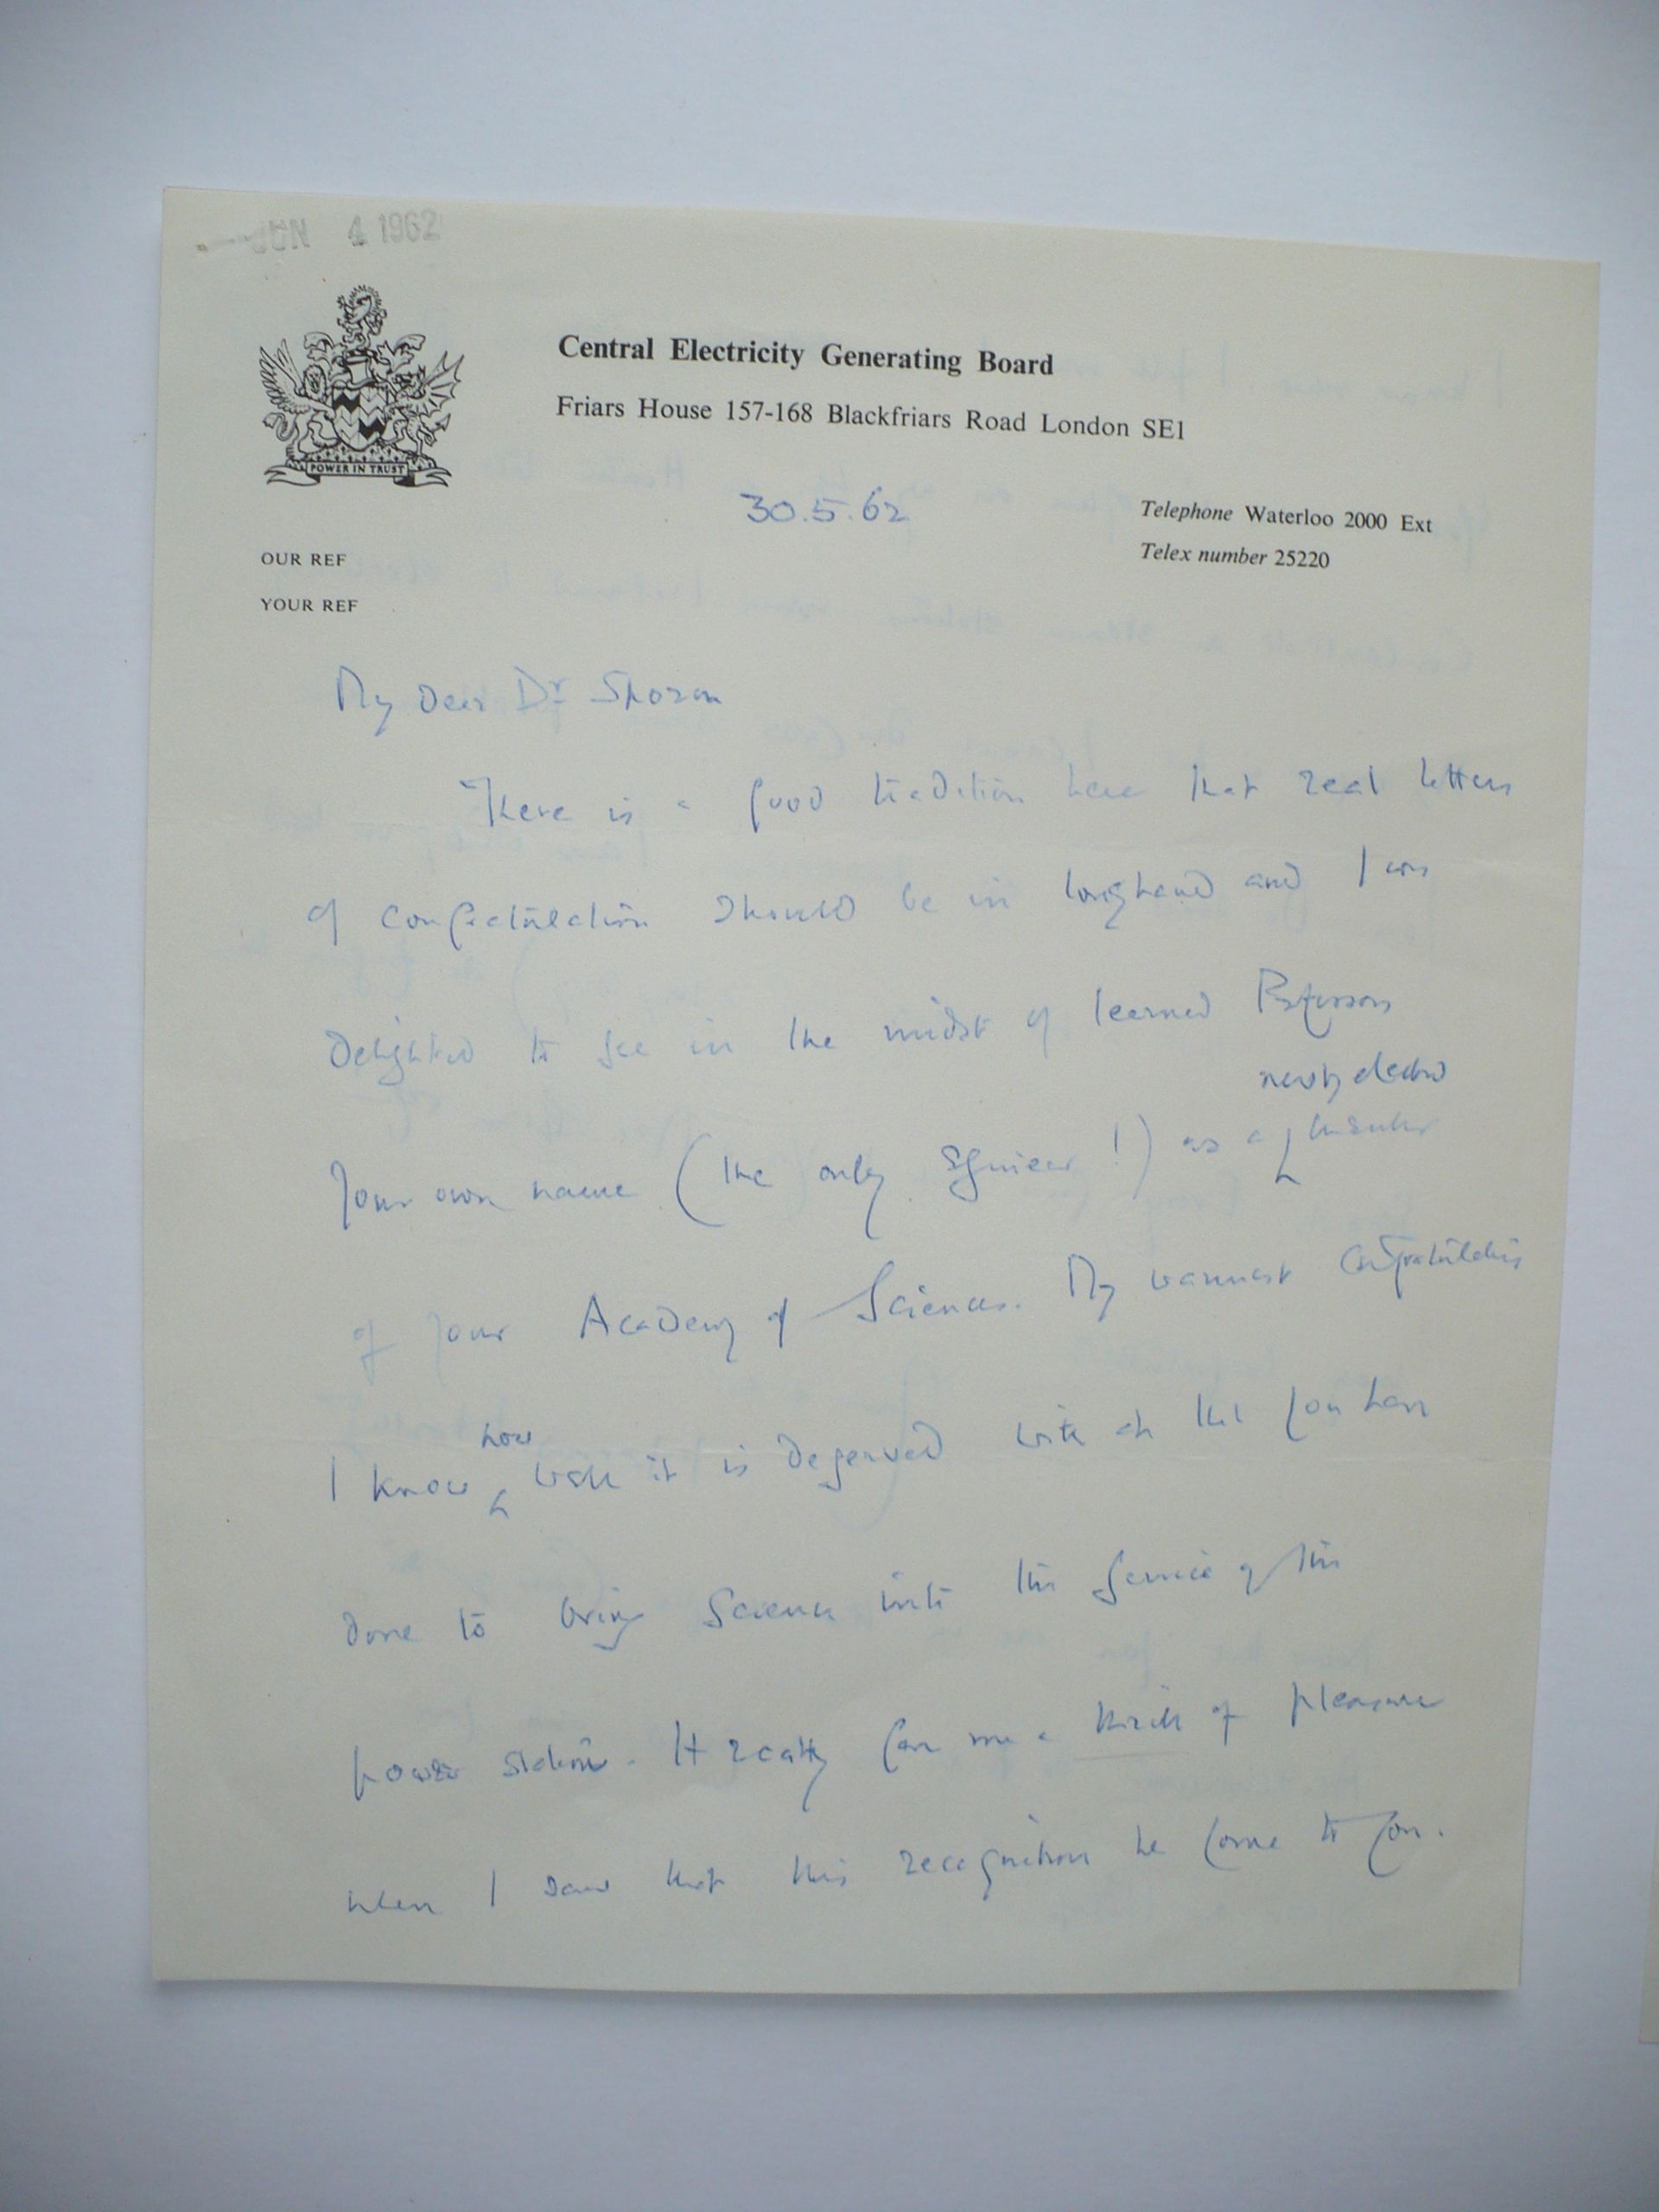 JUN 4 1962
Central Electricity Generating Board
Friars House 157-168 Blackfriars Road London SE1
POWER IN TRUST
30.5.62
Telephone Waterloo 2000 Ext
Telex number 25220
OUR REF
YOUR REF
My Dear Dr Sporn
There is a good tradition here that real letters
of congratulation should be in longhand and I was
Delighted to see in the midst of learned Professors
newly elected
your own name (the only Engineer!) as a member
of your Academy of Sciences. My warmest congratulations
how
I know well it is deserved with all that you have
done to bring Science into the service of the
power station. It really gave me a thrill of pleasure
when I saw that this recognition had come to you.